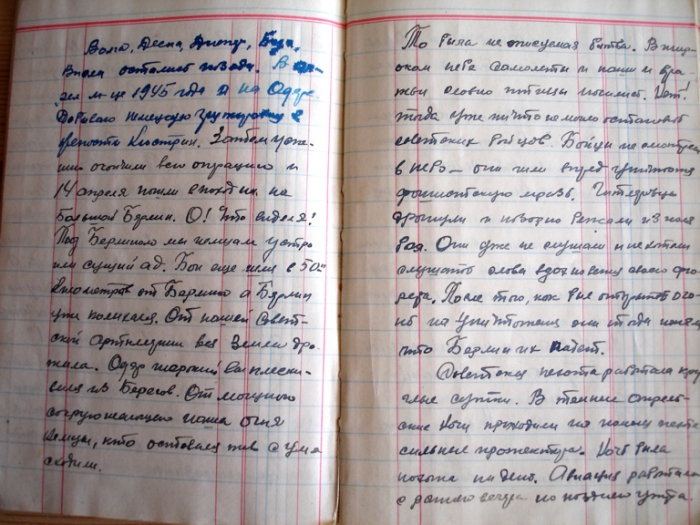 Волга, Десна, Днепр, Буг,
Висла остались позади. В ап-
рел м-це 1945 года я на Одре.
Добиваю немецкую группировку в
крепости Кюстрин. Затем успе-
шно окончили всю операцию и
14 апреля пошли в поход на
большой Берлин. О! Что видел я!
Под Берлином мы немцам устро
или сущий ад. Бои еще шли в 50-и
километров от Берлина а Берлин
уже колебался. От нашей Совет-
ской артиллерии вся Земля дро-
жала. Одер широкий выплески-
вался из Берегов. От мощного
сокрушающего нашего огня
немцы, кто оставался жив с ума
сходили.
То была не описуемая битва. В шир
оком небе самолеты и наши и вра
жьи словно птицы носились. Нет!
тогда уже ничто не могло остановить
советских бойцов. Бойцы не смотрели
в небо — они шли вперед уничтожая
фашистскую мразь. Гитлеровцы
дрогнули и позорно бежали из поля
боя. Они уже не слушали и не хотели
слушать слова вдохновения своего фю-
рера. После того, как был открыт ого-
нь на уничтожение они тогда поняли
что Берлин их падет.
Советская пехота работала кру
глые сутки. В темные апрель-
ские ночи приходили на помощь пехоте
сильные прожектора. Ночь была
похожа на день. Авиация работала
с раннего вечера до позднего утра